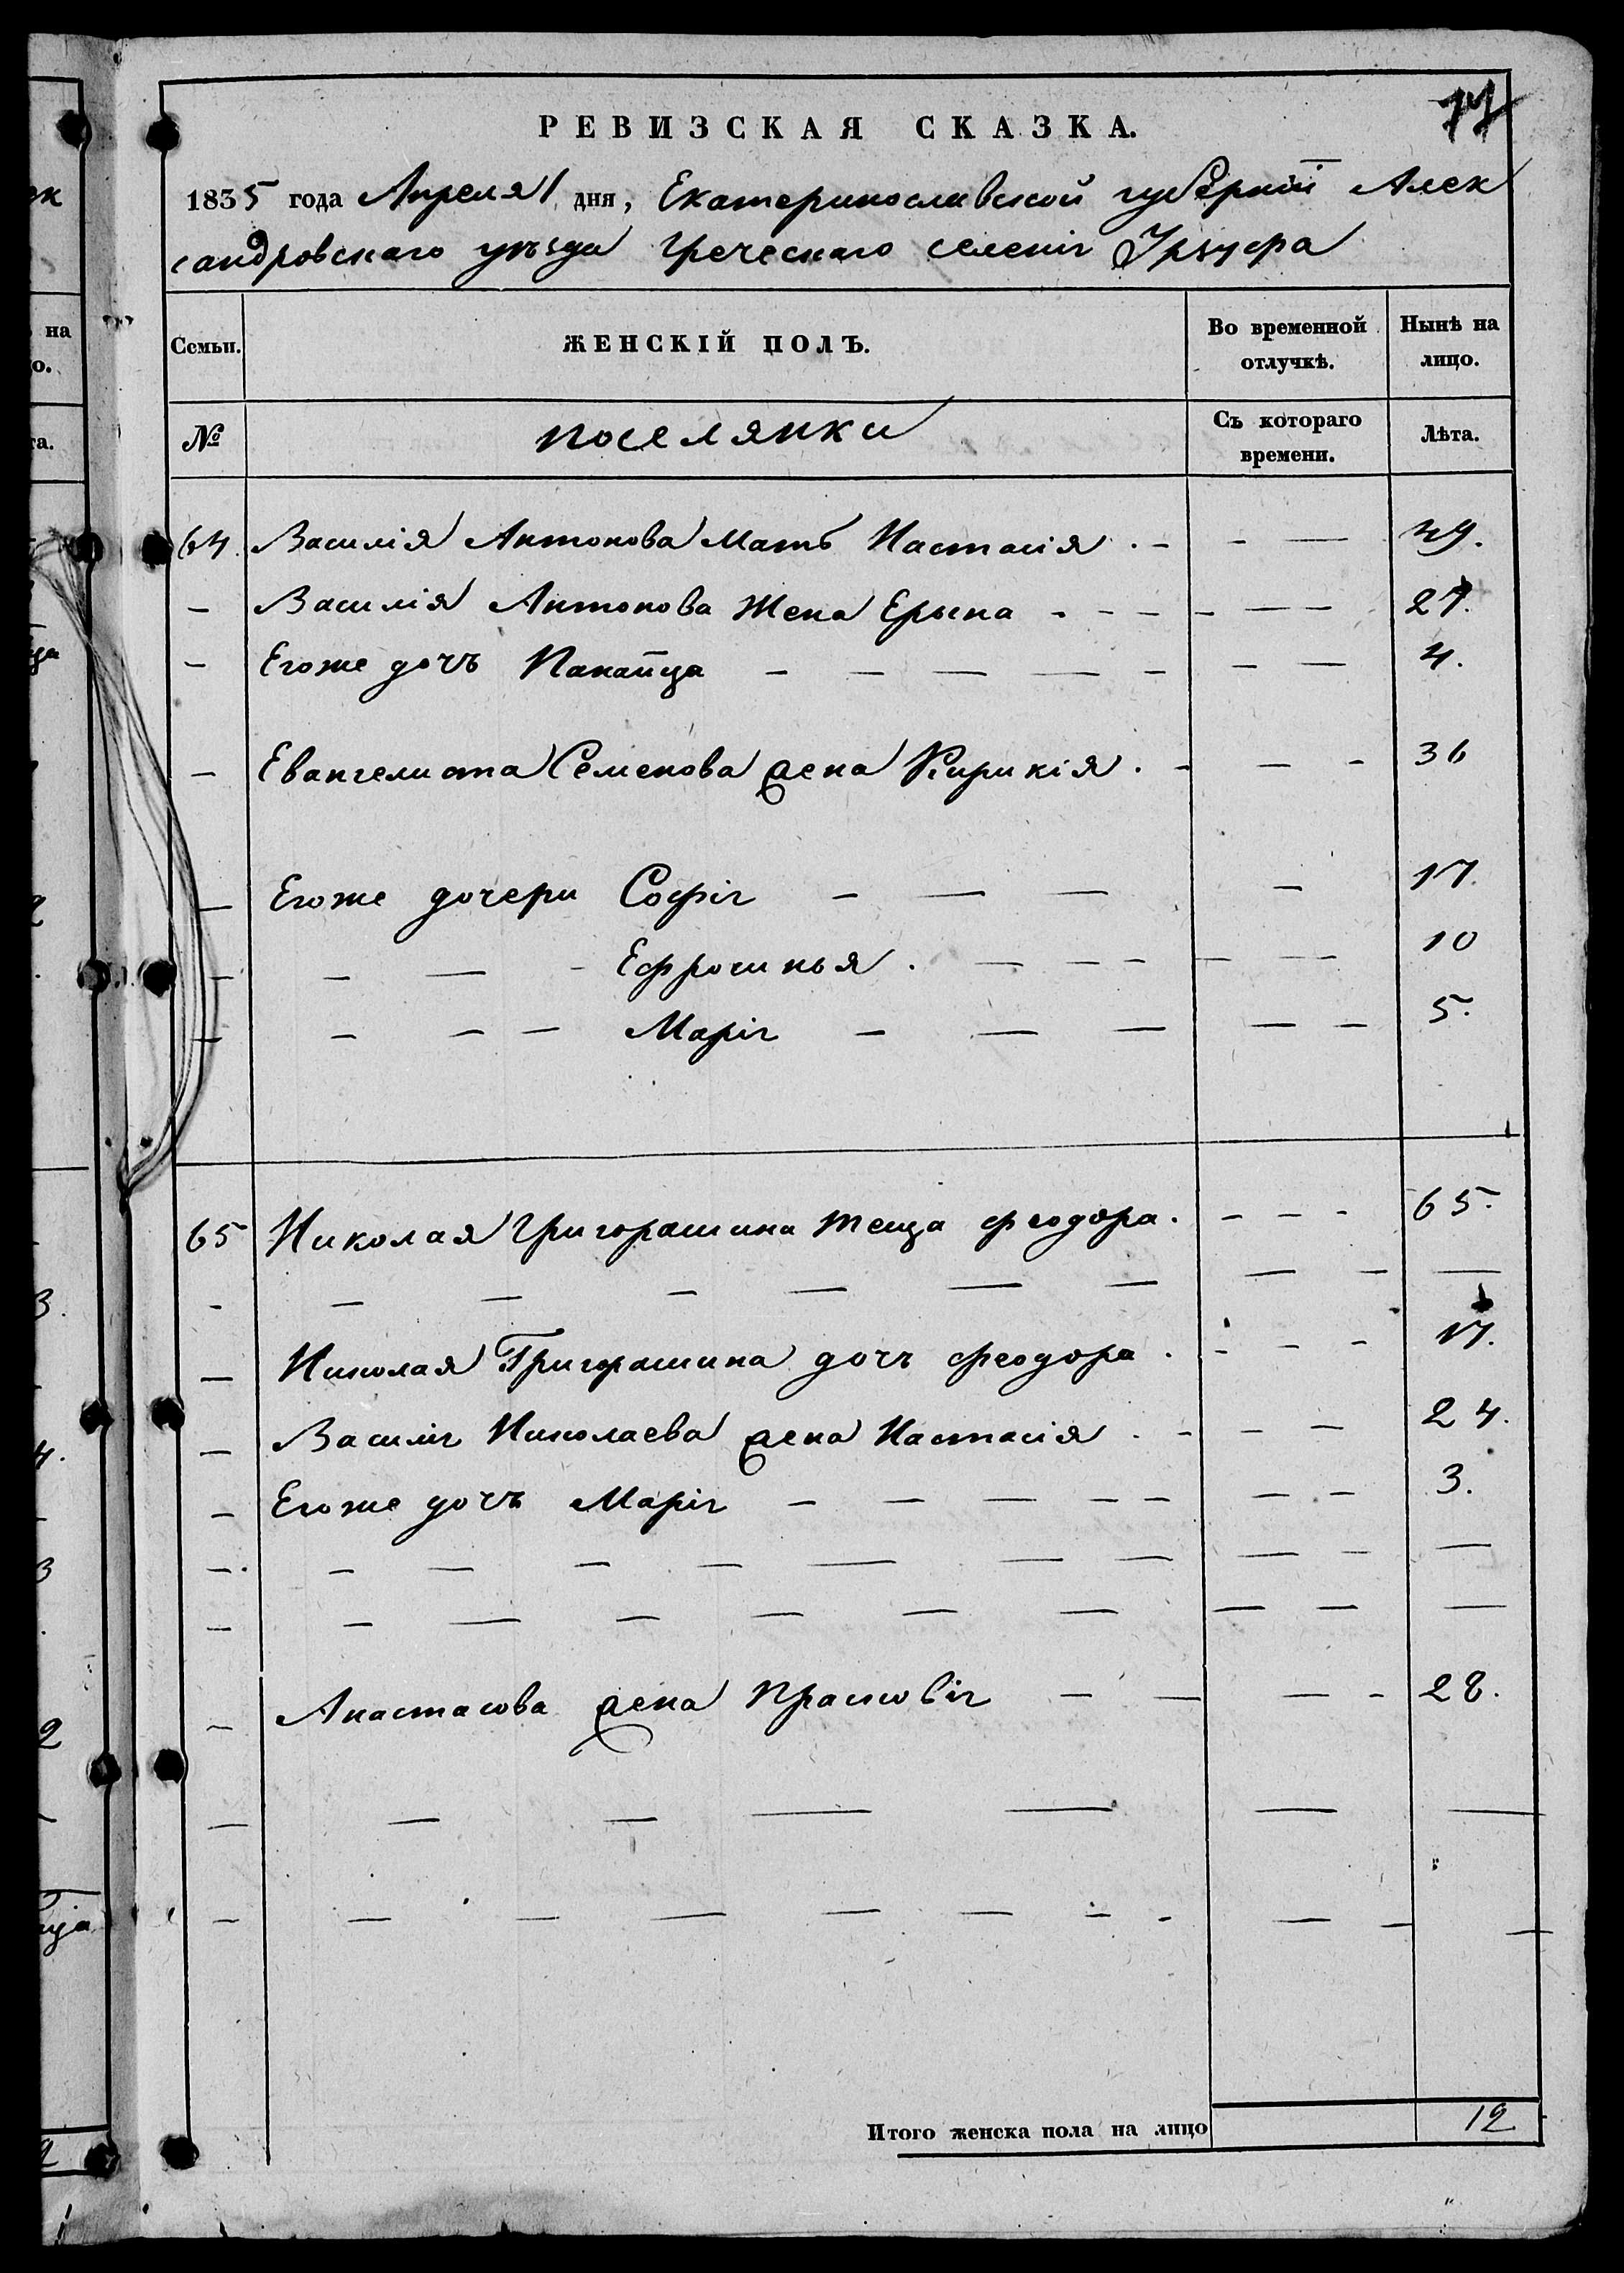 77
РЕВИЗСКАЯ СКАЗКА.
1835 года Апреля 1 дня, Екатеринославской губерніи Алек
сандровскаго уѣзда Греческаго селенія Урзуфа
Семьи. ЖЕНСКІЙ ПОЛЪ. Во временной отлучкѣ. Нынѣ на лицо.
№ поселянки Съ котораго времени. Лѣта.
64. Василія Антонова Мать Настасія . - - — 49.
— Василія Антонова Жена Ерына - - - - — — 27.
— Егоже дочъ Панаица — — — — - — — 4.
— Евангелиста Семенова жена Кирикія . - — - 36
— Егоже дочери Софія — — — — 17.
— — — - Ефросинья . — — - — — — 10
— — — — Марія — — — — — 5.
65 Николая Григорашина теща феодора. - - - 65.
- — — — — — — — — —
— Николая Григорашина дочъ феодора . - - - 17.
— Василія Николаева жена Настасія . - - — 24.
— Егоже дочъ Марія — — — — — — — 3.
—. — — — — — — — — — —
— — — — — — — — — —
— Анастасова жена Прасковія — — — - 28.
— — — — — — —
— — — — — — - - — — —
Итого женска пола на лицо 12